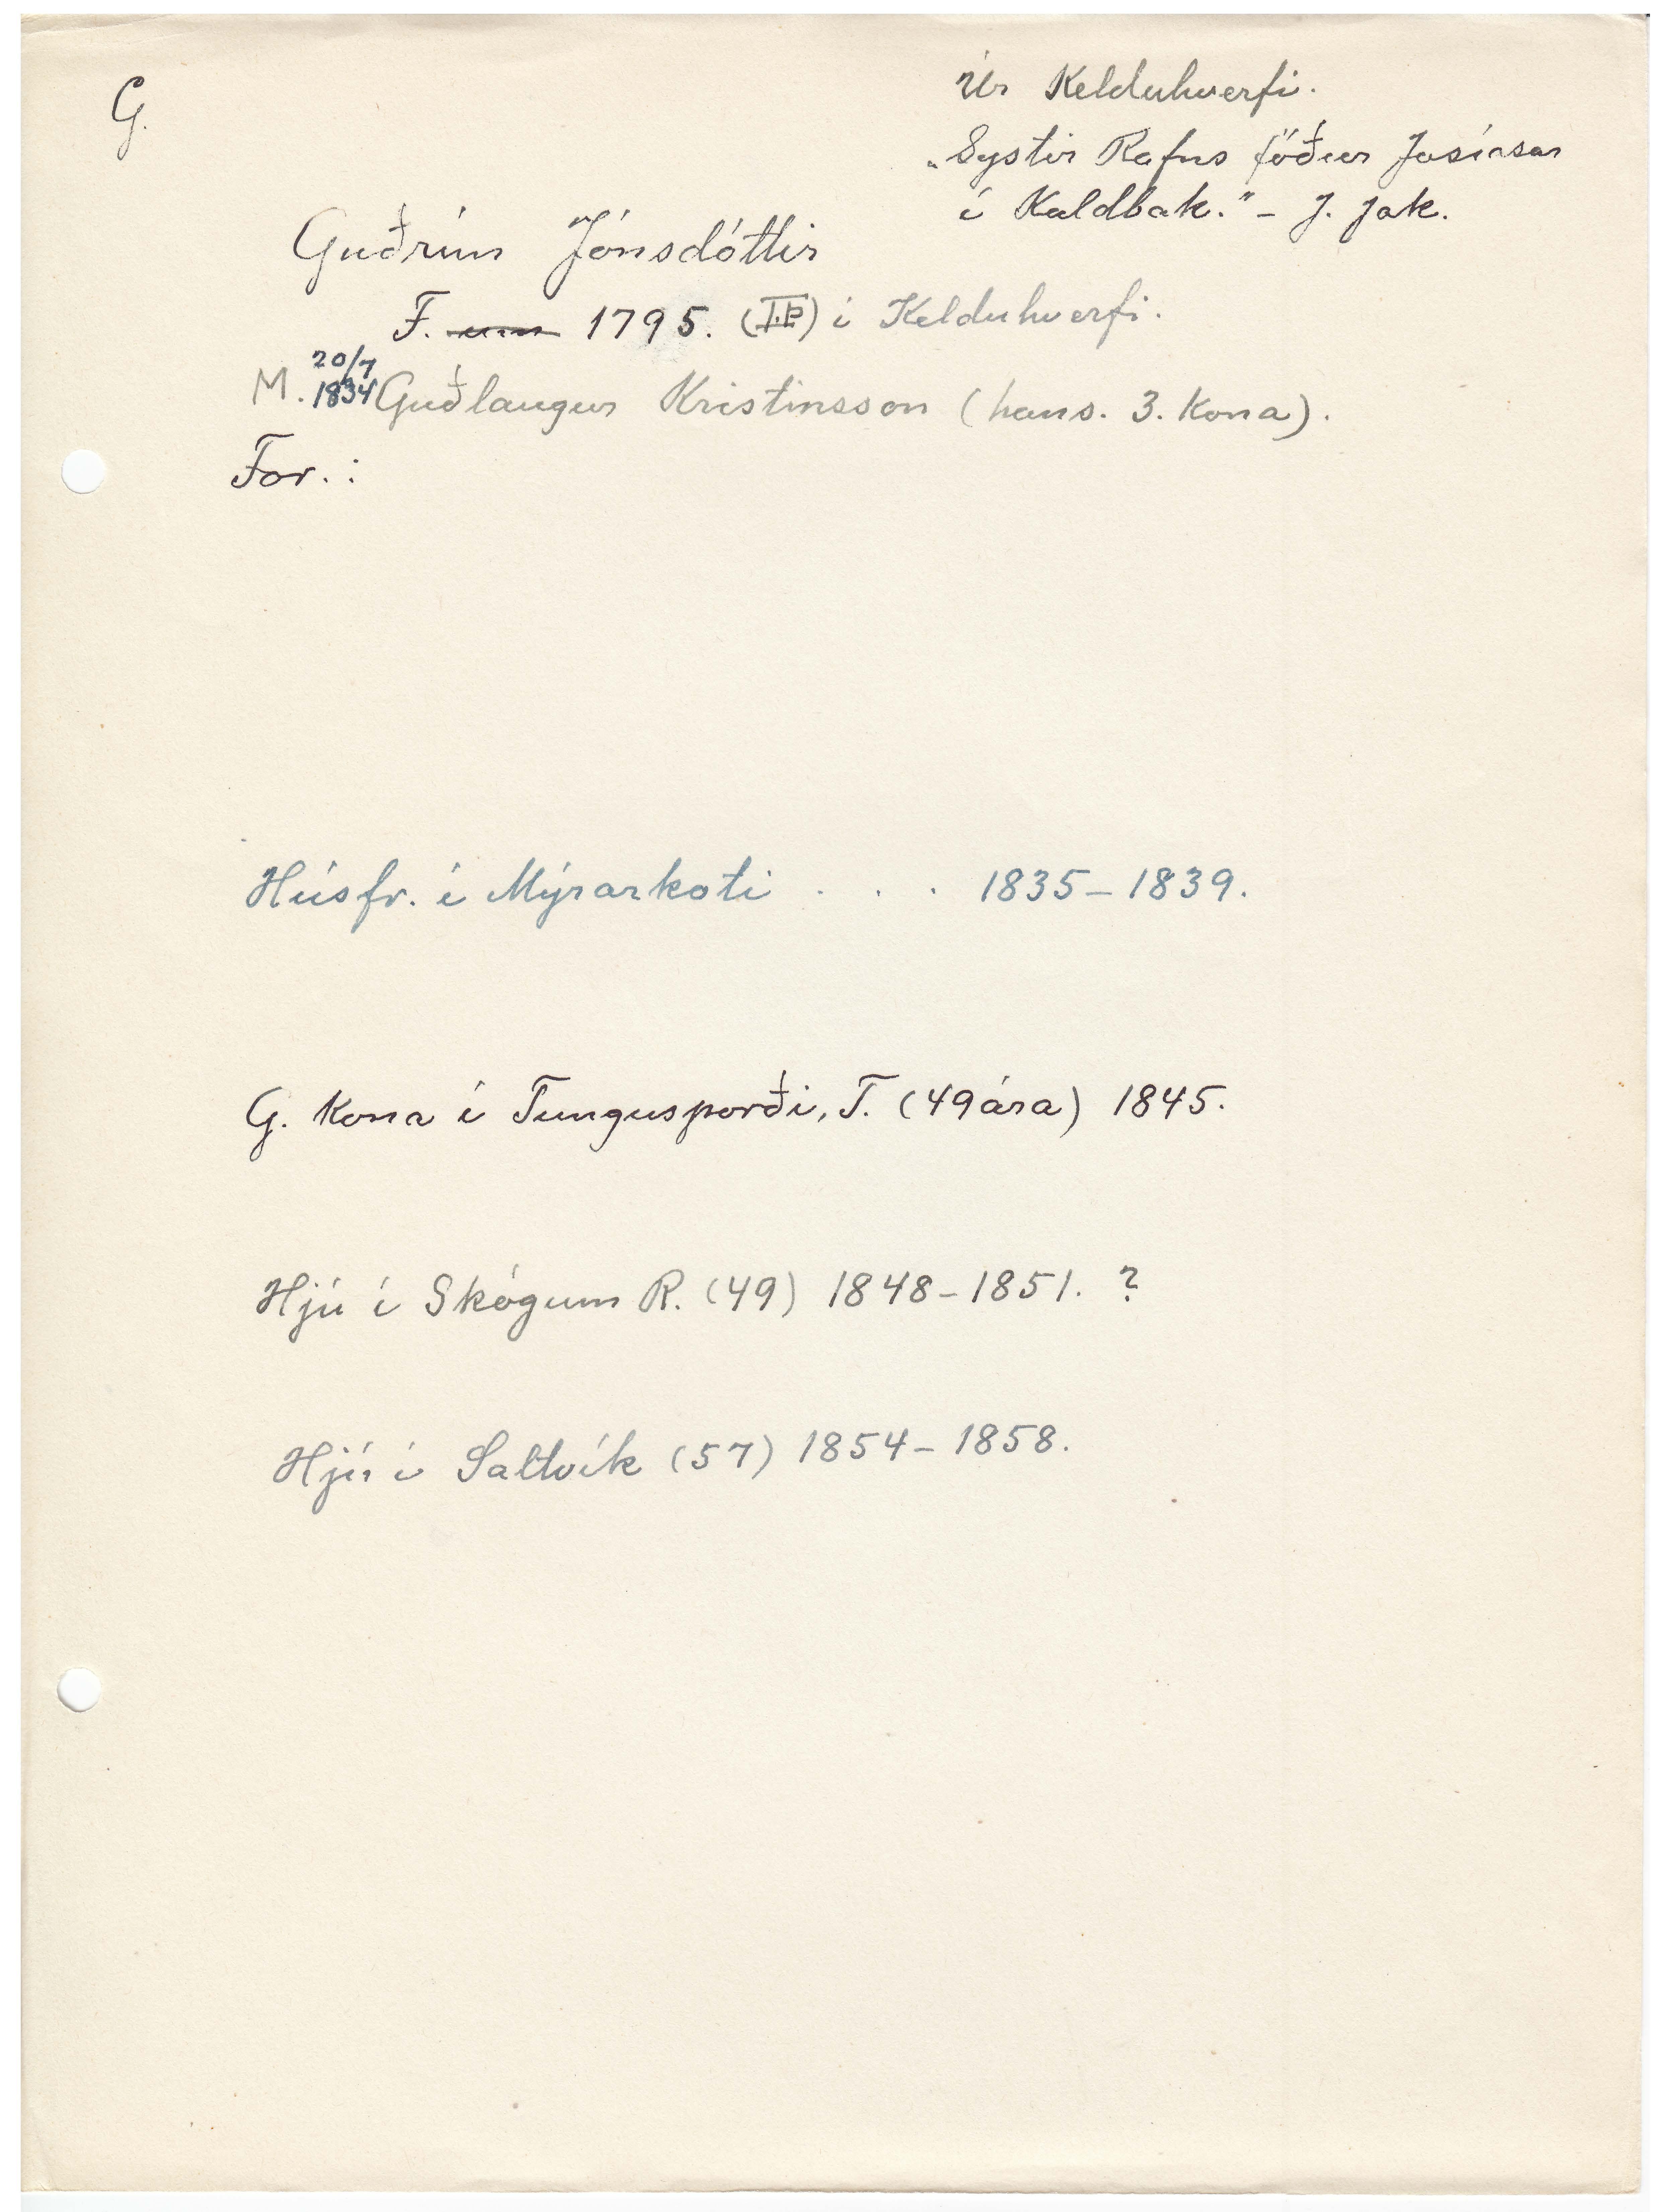 G.
Úr Kelduhverfi.
„Systir Rafns föður Jósíasar
í Kaldbak." – J. Jak.
Guðrún Jónsdóttir
F. um 1795. (I.P) í Kelduhverfi.
20/7
M. 1834 Guðlaugur Kristinsson (hans. 3. kona).
For. :
Húsfr. í Mýrarkoti . . . 1835–1839.
G. kona í Tungusporði, T. (49 ára) 1845.
Hjú í Skógum R. (49) 1848–1851. ?
Hjú í Saltvík (57) 1854–1858.